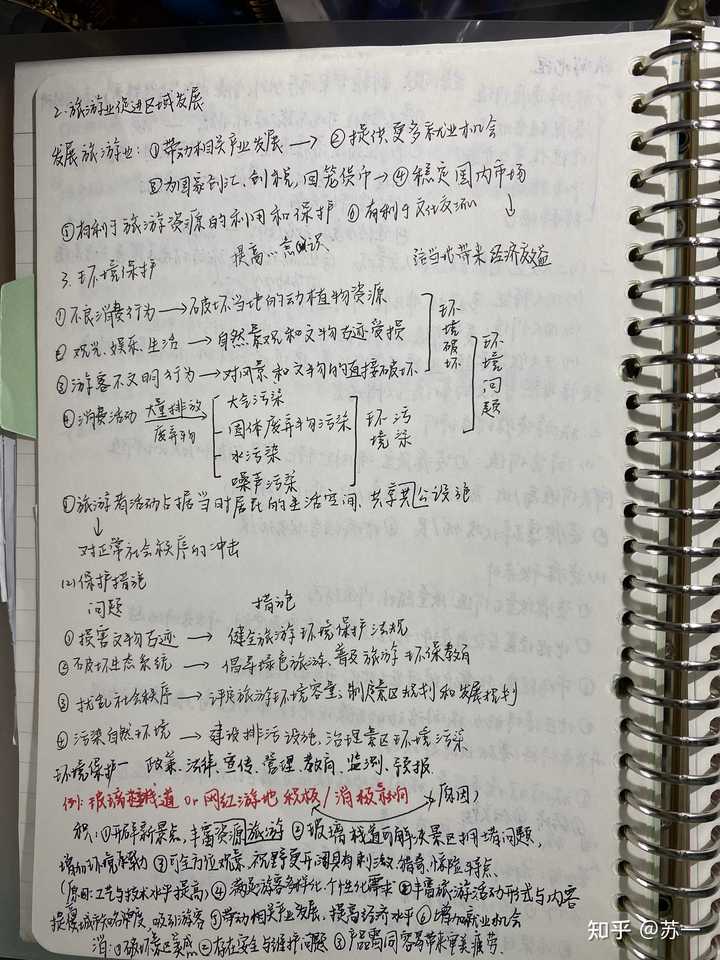 2.旅游业促进区域发展
发展旅游业:①带动相关产业发展→②提供更多就业机会
③为国家创汇、创税,回笼货币→④稳定国内市场
⑤有利于旅游资源的利用和保护 ⑥有利于文化交流 ↓
提高…意识 给当地带来经济效益
3.环境保护
①不良消费行为→破坏当地的动植物资源
②观光、娱乐、生活→自然景观和文物古迹受损
③游客不文明行为→对风景和文物的直接破坏
环境破坏
环境问题
④消费活动 大量排放废弃物
大气污染
固体废弃物污染
水污染
噪声污染
环境污染
⑤旅游者活动占据当时居民的生活空间、共享公设施
↓
对正常社会秩序的冲击
(2)保护措施
问题 措施
①损害文物古迹→健全旅游环境保护法规
②破坏生态系统→倡导绿色旅游、普及旅游环保教育
③扰乱社会秩序→评定旅游环境容量,制定景区规划和发展规划
④污染自然环境→建设排污设施,治理景区环境污染
环境保护一 政策、法律、宣传、管理、教育、监测、预报
例:玻璃栈道 or 网红游地 积极/消极影响 原因)
积:①开辟新景点,丰富资源旅游 ②玻璃栈道可解决景区拥堵问题,
增加环境承载力 ③可全方位观景,视野更开阔具有刺激、猎奇、惊险特点.
(原因:工艺与技术水平提高)④满足游客多样化、个性化需求 丰富旅游活动形式与内容
提高城市知名度,吸引游客 ⑤带动相关产业发展,提高经济水平 ⑥增加就业机会
消:①破坏景区美感 ②存在安全与维护问题 ③产品雷同容易带来审美疲劳.
知乎 @苏一